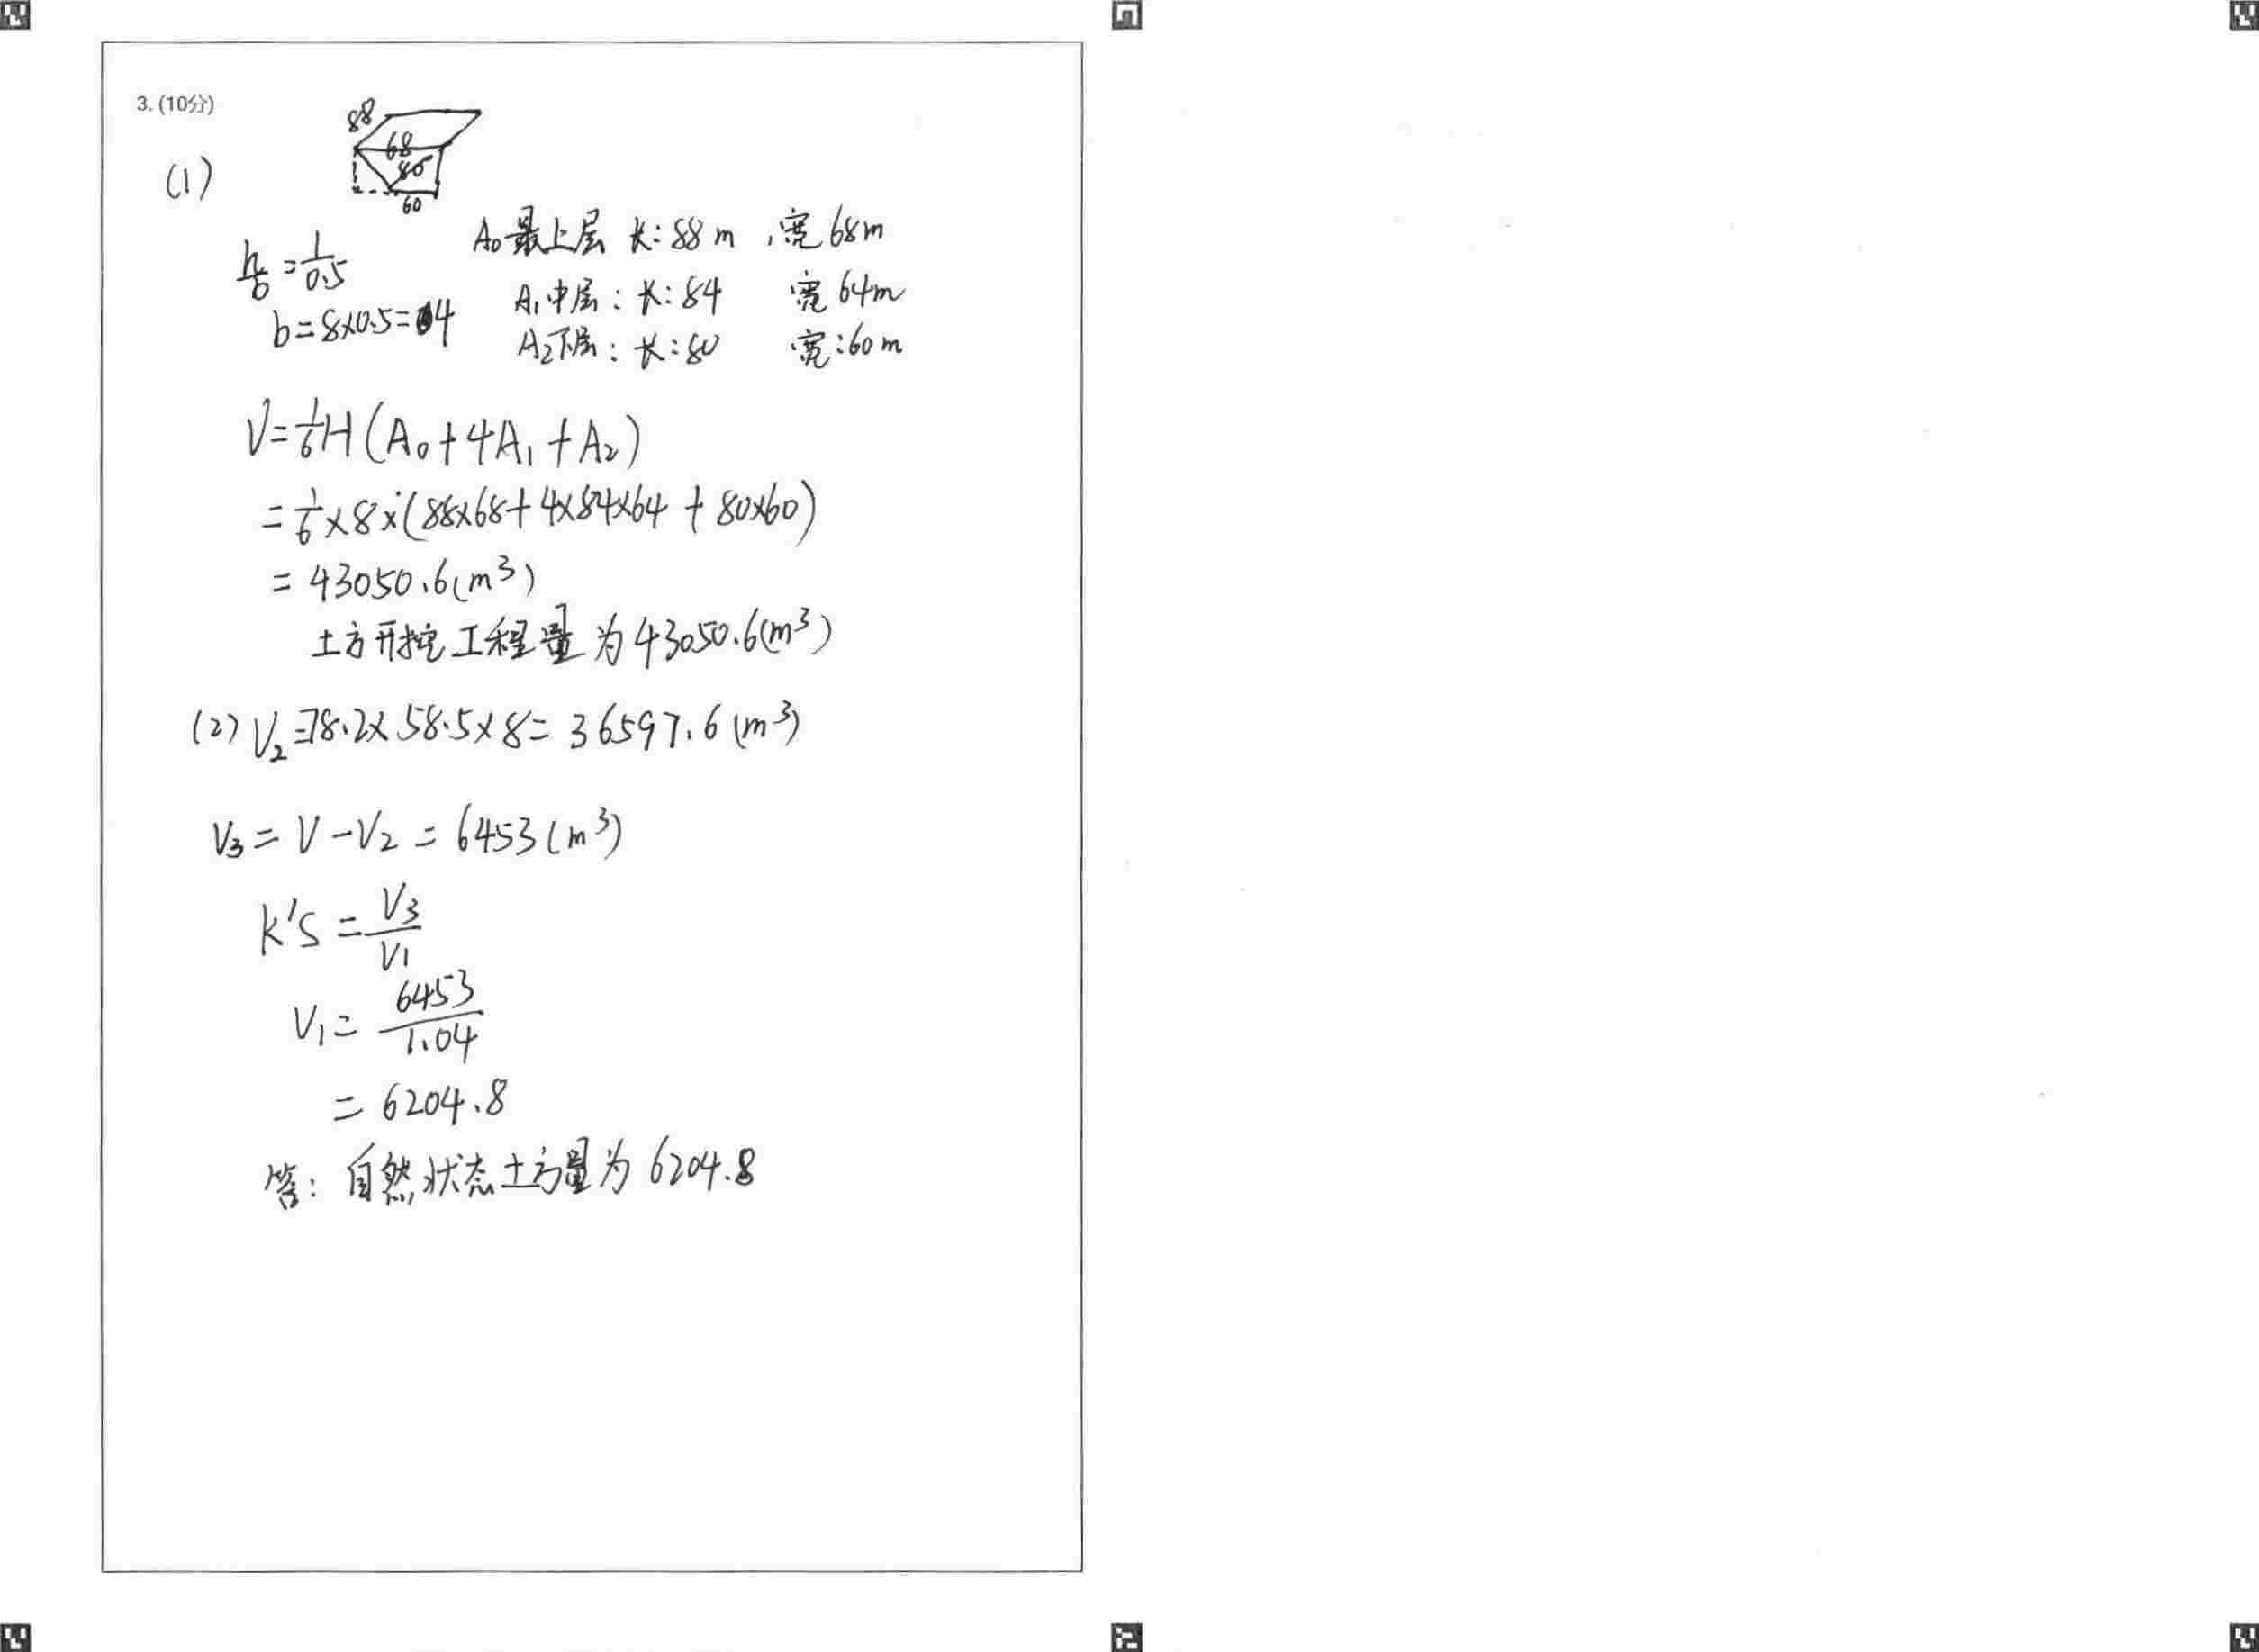 3. (10分)
88
68
80
60
(1)
A₀最上层 长:88m ,宽68m
h/b = 1/0.5
A₁中层: 长:84 宽64m
b=8×0.5=4
A₂下层: 长:80 宽:60m
V=1/6H(A₀+4A₁+A₂)
=1/6×8×(88×68+4×84×64+80×60)
=43050.6(m³)
土方开挖工程量为43050.6(m³)
(2) V₂=78.2×58.5×8=36597.6(m³)
V₃=V-V₂=6453(m³)
K's=V₃/V₁
V₁=6453/1.04
=6204.8
答: 自然状态土方量为6204.8